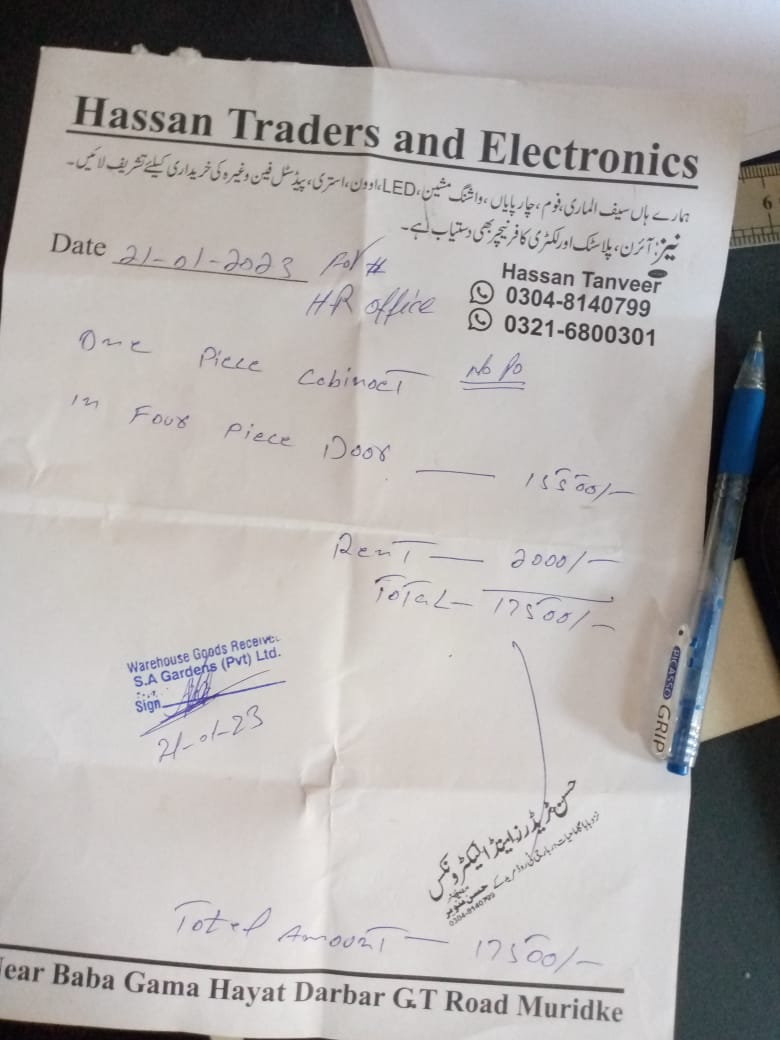 Hassan Traders and Electronics
ہمارے ہاں سیف الماری، فوم، چارپایاں، واشنگ مشین، LED، اوون، استری، پیڈسٹل فین وغیرہ کی خریداری کیلئے تشریف لائیں۔
نیز: آئرن، پلاسٹک اور لکڑی کا فرنیچر بھی دستیاب ہے۔
Date 21-01-2023 For #
HR office
Hassan Tanveer
0304-8140799
0321-6800301
One Piece Cabinet No Po
in Four Piece Door — 15500/-
Rent — 2000/-
Total - 17500/-
Warehouse Goods Receive
S.A Gardens (Pvt) Ltd.
Sign
21-01-23
حسن ٹریڈرز اینڈ الیکٹرونکس
حسن تنویر
0304-8140799
Total Amount — 17500/-
Near Baba Gama Hayat Darbar G.T Road Muridke
PICASSO GRIP
6